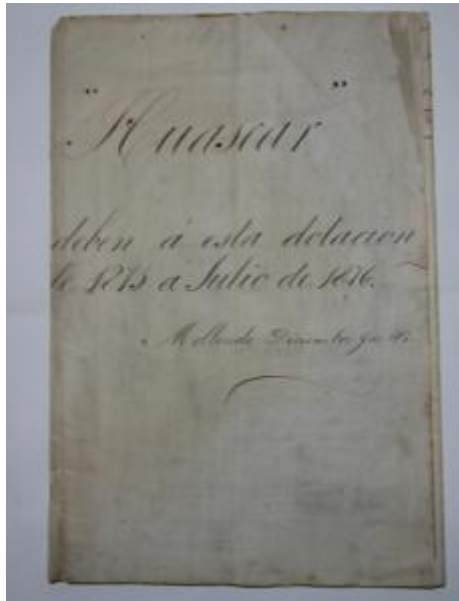 "Huascar"
deben á esta dotacion
de 1875 a Julio de 1876.
Mollendo Diciembre